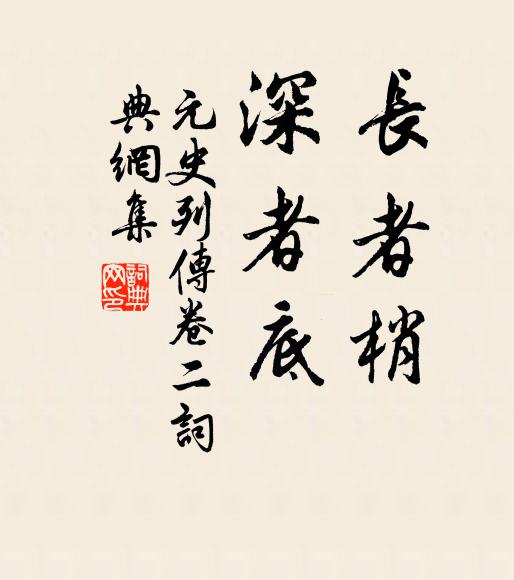 長者梢
深者底
元史列傳卷二詞
典網集
詞典
网印